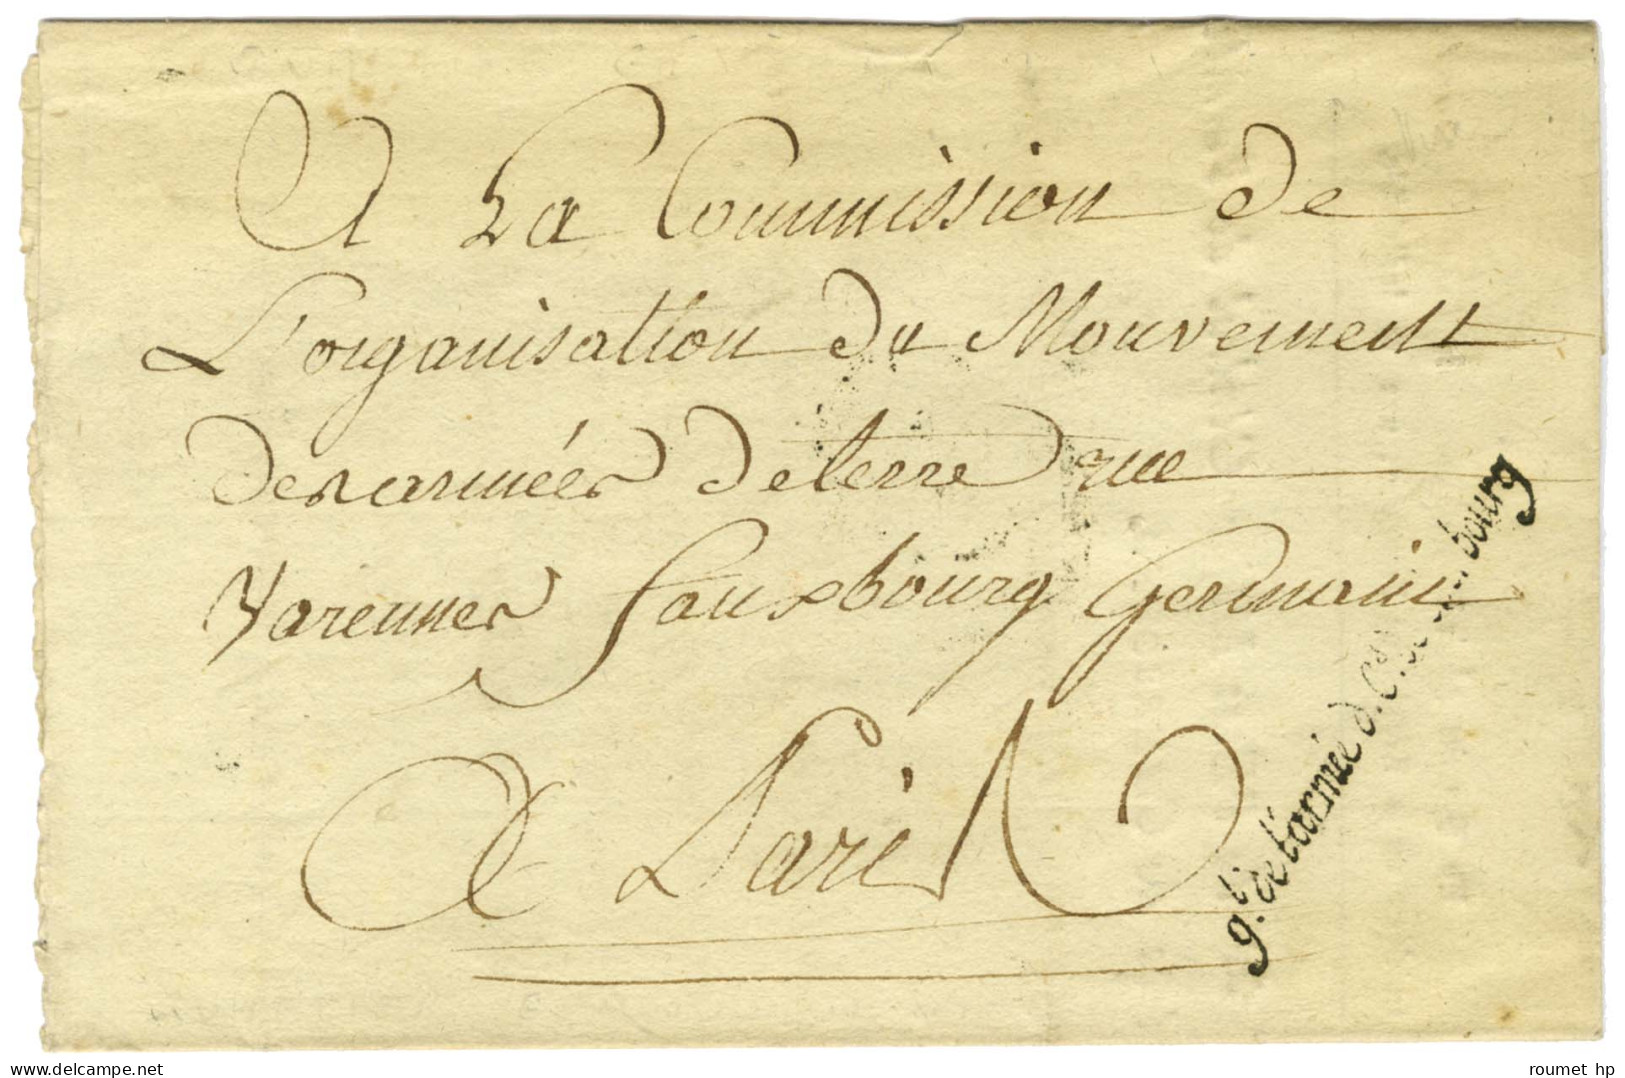 A La Commission de
L'organisation du Mouvement
des armées de terre rue
Varennes fauxbourg Germain
A Paris
g.l de l'armée d. C.es bourg
roumet hp